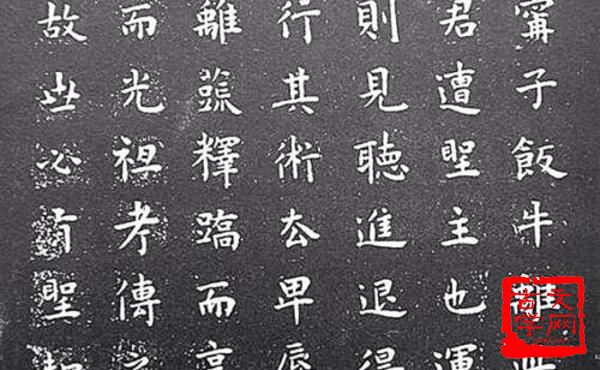 甯子飯牛離此
君遭聖主也運
則見聽進退得
行其術去卑辱
離蔬釋蹻而享
而光祖考傳之
故世必有聖知
古文学网